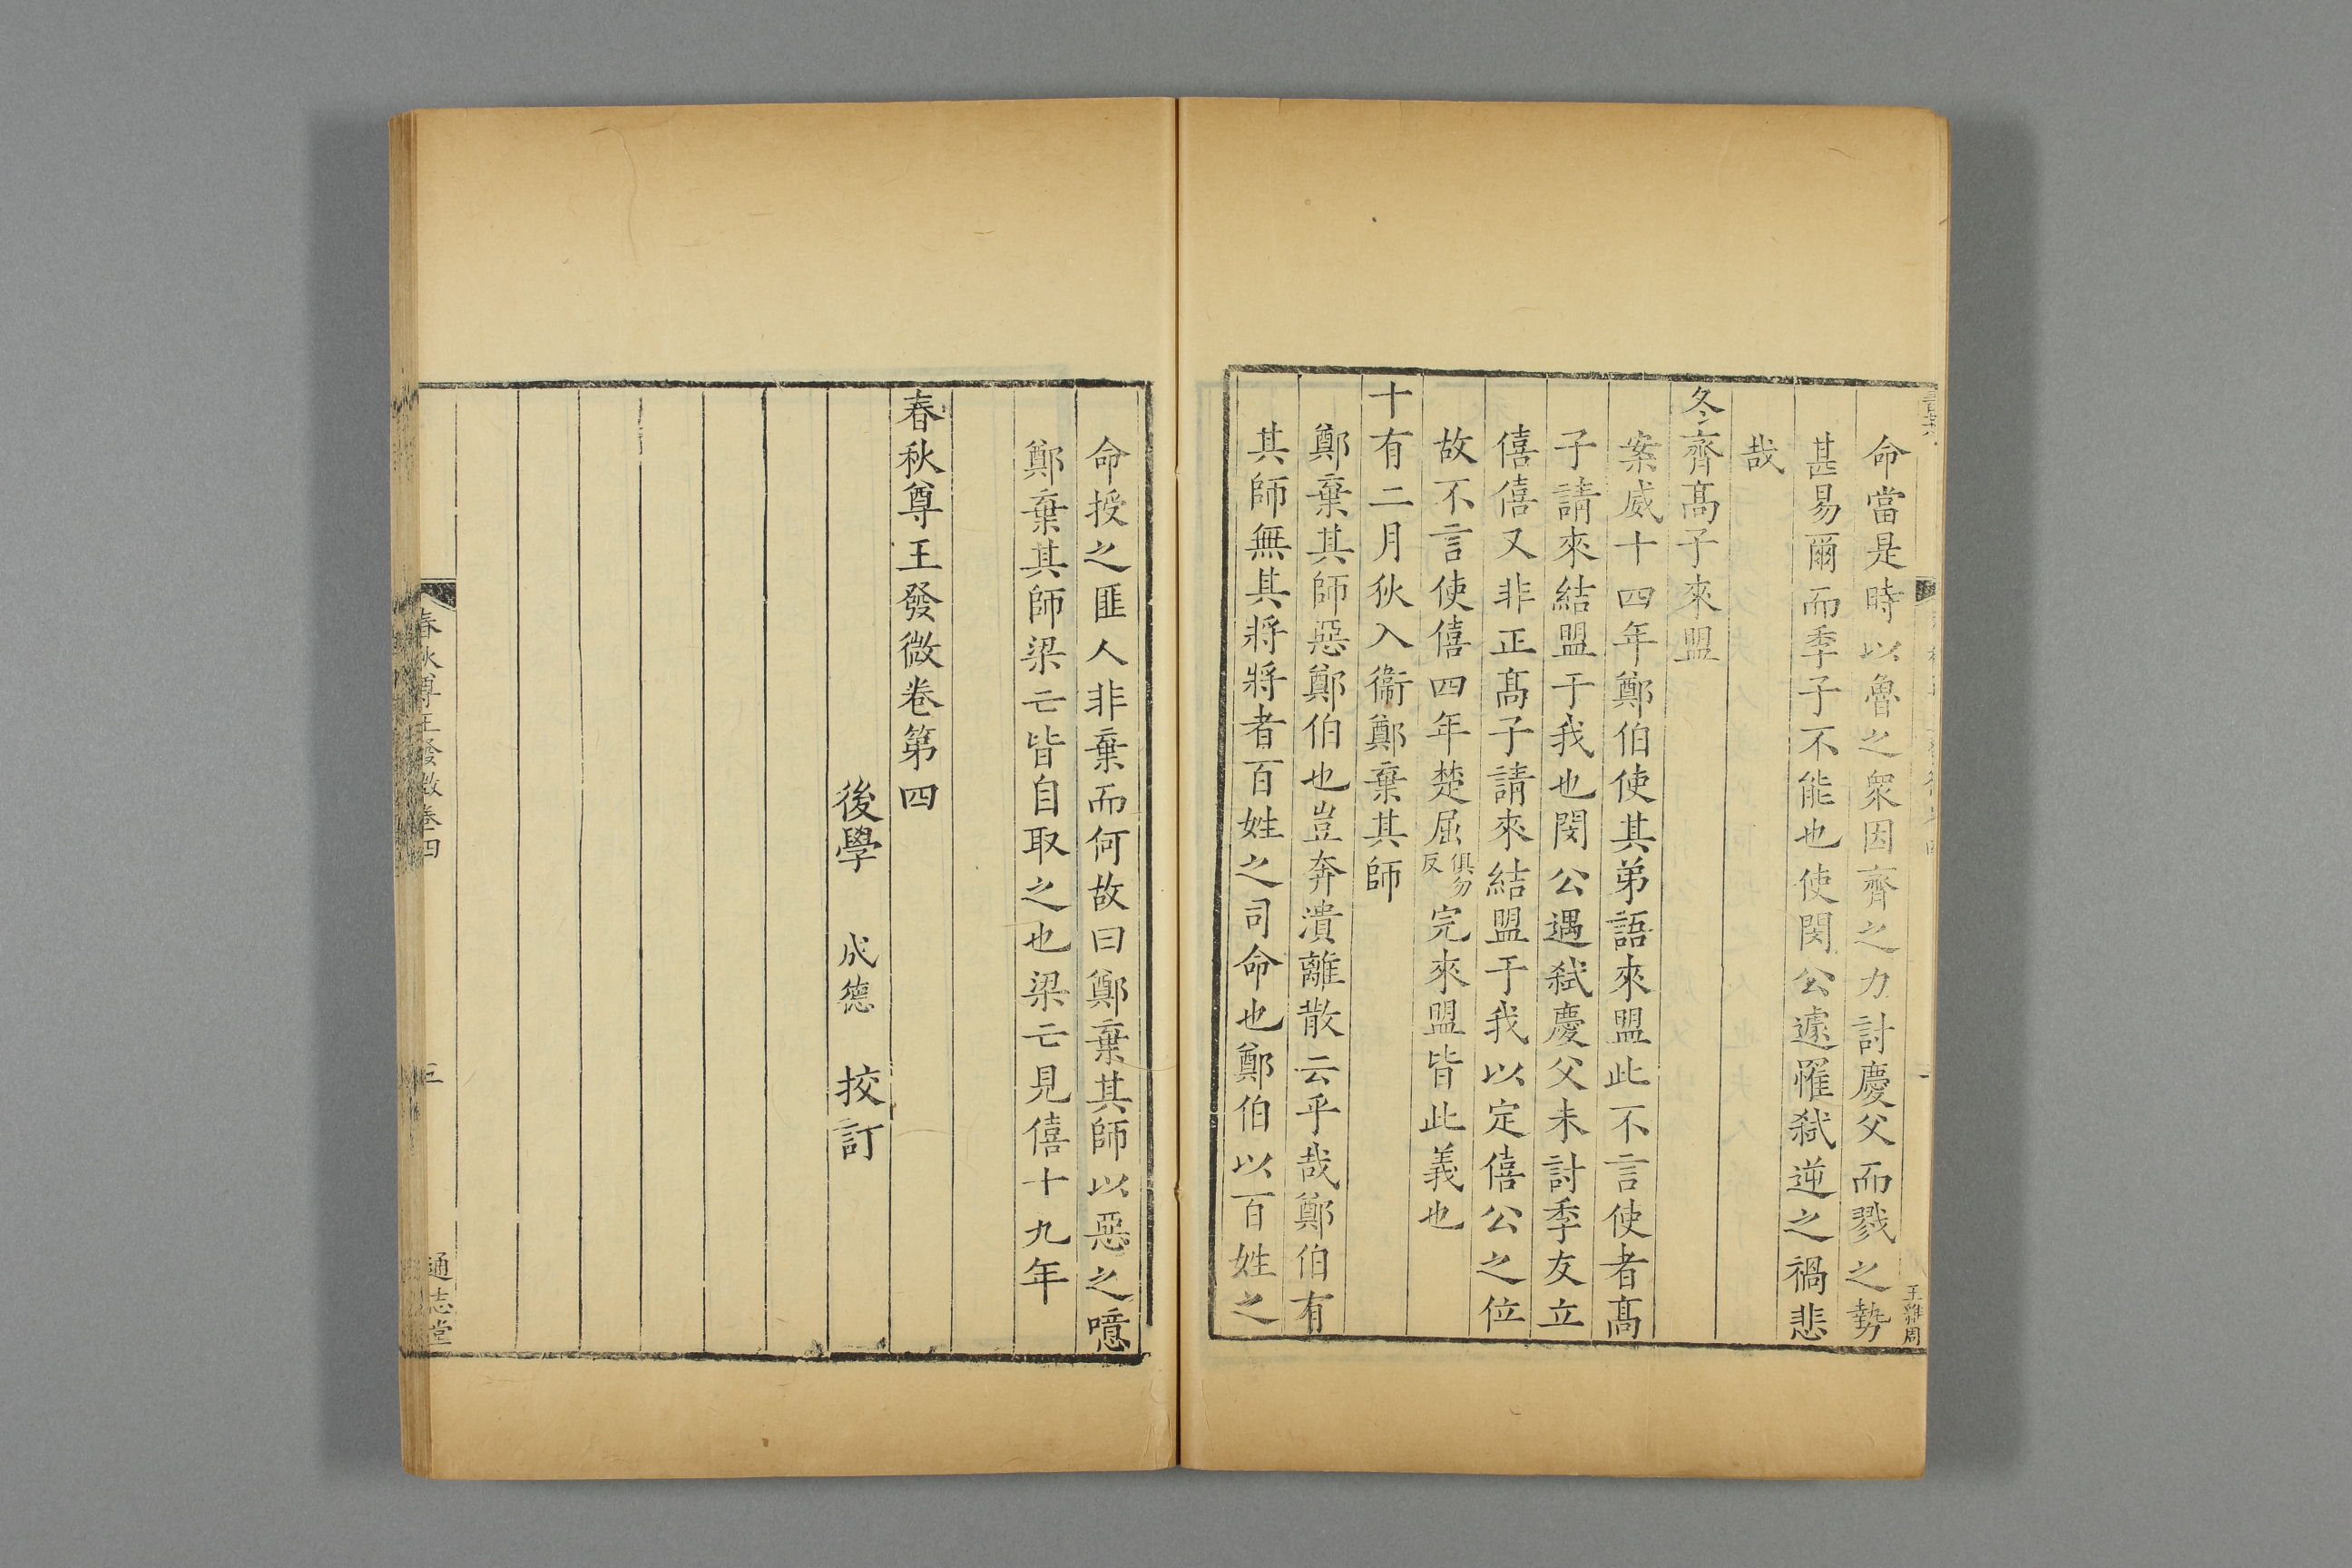 命當是時以魯之衆因齊之力討慶父而戮之勢
甚易爾而季子不能也使閔公遽罹弑逆之禍悲
哉
冬齊髙子來盟
案威十四年鄭伯使其弟語來盟此不言使者髙
子請來結盟于我也閔公遇弑慶父未討季友立
僖僖又非正髙子請來結盟于我以定僖公之位
故不言使僖四年楚屈俱勿反完來盟皆此義也
十有二月狄入衞鄭棄其師
鄭棄其師惡鄭伯也豈奔潰離散云乎哉鄭伯有
其師無其將將者百姓之司命也鄭伯以百姓之
王雅周
命授之匪人非棄而何故曰鄭棄其師以惡之噫
鄭棄其師梁亡皆自取之也梁亡見僖十九年
春秋尊王發微卷第四
後學 成德 挍訂
春秋尊王發微卷四
三
通志堂